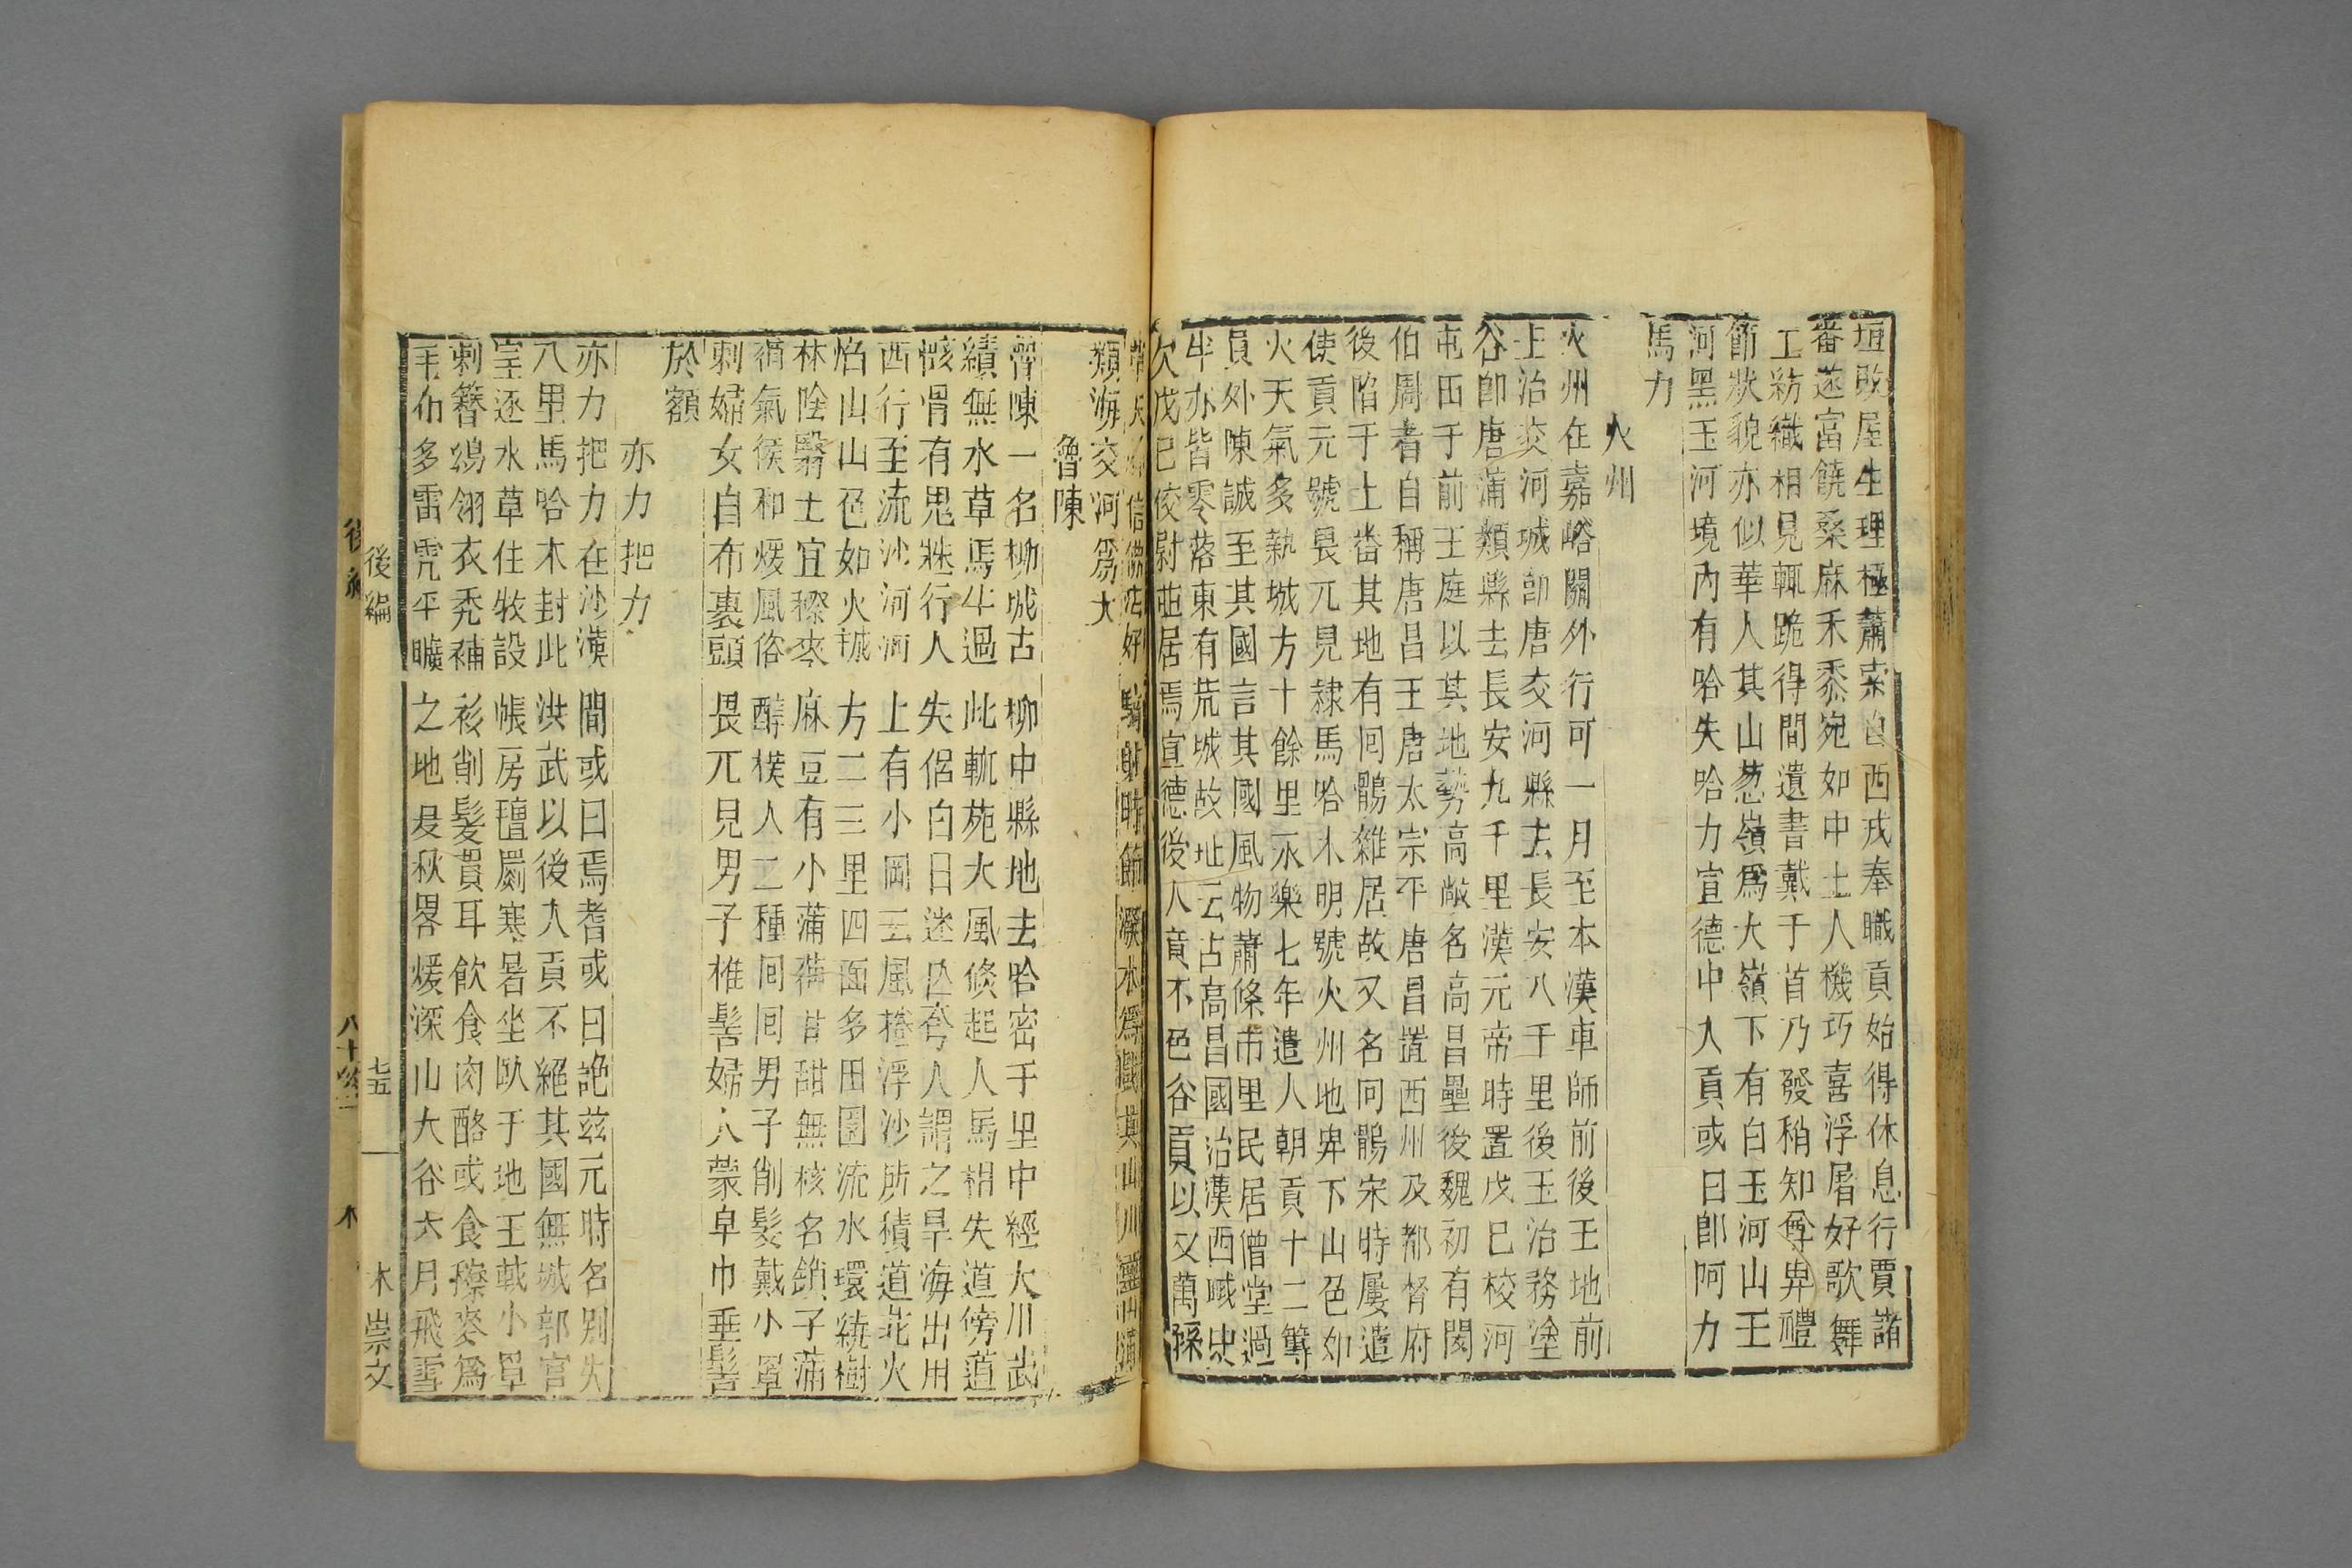 垣敗屋生理極蕭索自西戎奉職貢始得休息行賈諸
番遂富饒桑麻禾黍宛如中土人機巧喜浮屠好歌舞
工紡織相見輒跪得間遺書戴于首乃發稍知尊卑禮
節狀貌亦似華人其山葱嶺爲大嶺下有白玉河山玉
河黑玉河境內有哈失哈力宣德中入貢或曰卽阿力
馬力
火州
火州在嘉峪關外行可一月至本漢車師前後王地前
王治交河城卽唐交河縣去長安八千里後王治務塗
谷卽唐蒲類縣去長安九千里漢元帝時置戊巳校河
屯田于前王庭以其地勢高敞名高昌壘後魏初有闞
伯周者自稱唐昌王唐太宗平唐昌置西州及都督府
後陷于土番其地有回鶻雜居故又名回鶻宋時屢遣
使貢元號畏兀見隷馬哈木明號火州地卑下山色如
火天氣多熱城方十餘里永樂七年遣人朝貢十二等
員外陳誠至其國言其國風物蕭條市里民居僧堂過
半亦皆零落東有荒城故址云占高昌國治漢西域史
欠戊巳校尉並居焉宣德後入貢不色谷貢以又萬孫
信佛法好騎射時節潑水爲戲其山川靈山蒲
類海交河爲大
魯陳
魯陳一名柳城古柳中縣地去哈密千里中經大川武
績無水草馬牛過此輒死大風倐起人馬相失道傍道
骸骨有鬼魅行人失侶白日迷亡夸人謂之旱海出用
西行至流沙河河上有小岡云風捲浮沙所積道北火
焰山山色如火城方二三里四面多田園流水環繞樹
林陰翳土宜穄麥麻豆有小蒲萄甘甜無核名鎖子蒲
萄氣候和煖風俗醇樸人二種囘囘男子削髮戴小罩
刺婦女自布裹頭畏兀見男子椎髻婦人蒙皁巾垂髻
於額
亦力把力
亦力把力在沙漠間或曰焉耆或曰䛐茲元時名別失
八里馬哈木封此洪武以後入貢不絕其國無城郭官
室逐水草住牧設帳房氊罽寒暑坐臥于地王戴小罩
刺簪鵁翎衣禿補衫削髮貫耳飲食肉酪或食穄麥爲
毛布多雷霓平曠之地夏秋畧煖深山大谷六月飛雪
後編
七五
木崇文